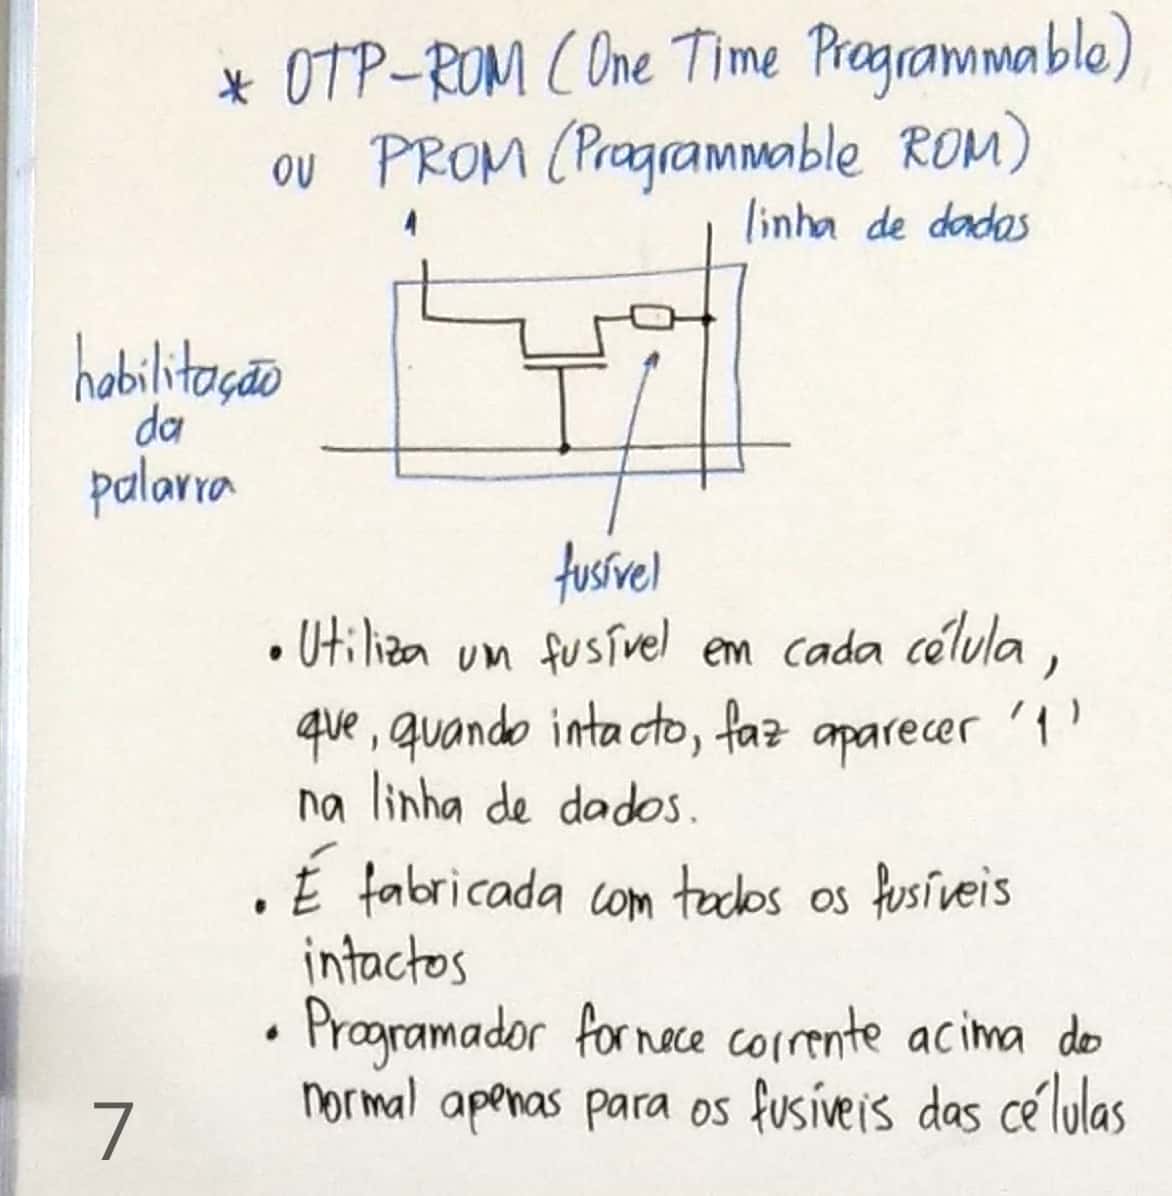 * OTP-ROM (One Time Programmable)
ou PROM (Programmable ROM)
1
linha de dados
habilitação
da
palavra
fusível
• Utiliza um fusível em cada célula,
que, quando intacto, faz aparecer '1'
na linha de dados.
• É fabricada com todos os fusíveis
intactos
• Programador fornece corrente acima do
normal apenas para os fusíveis das células
7